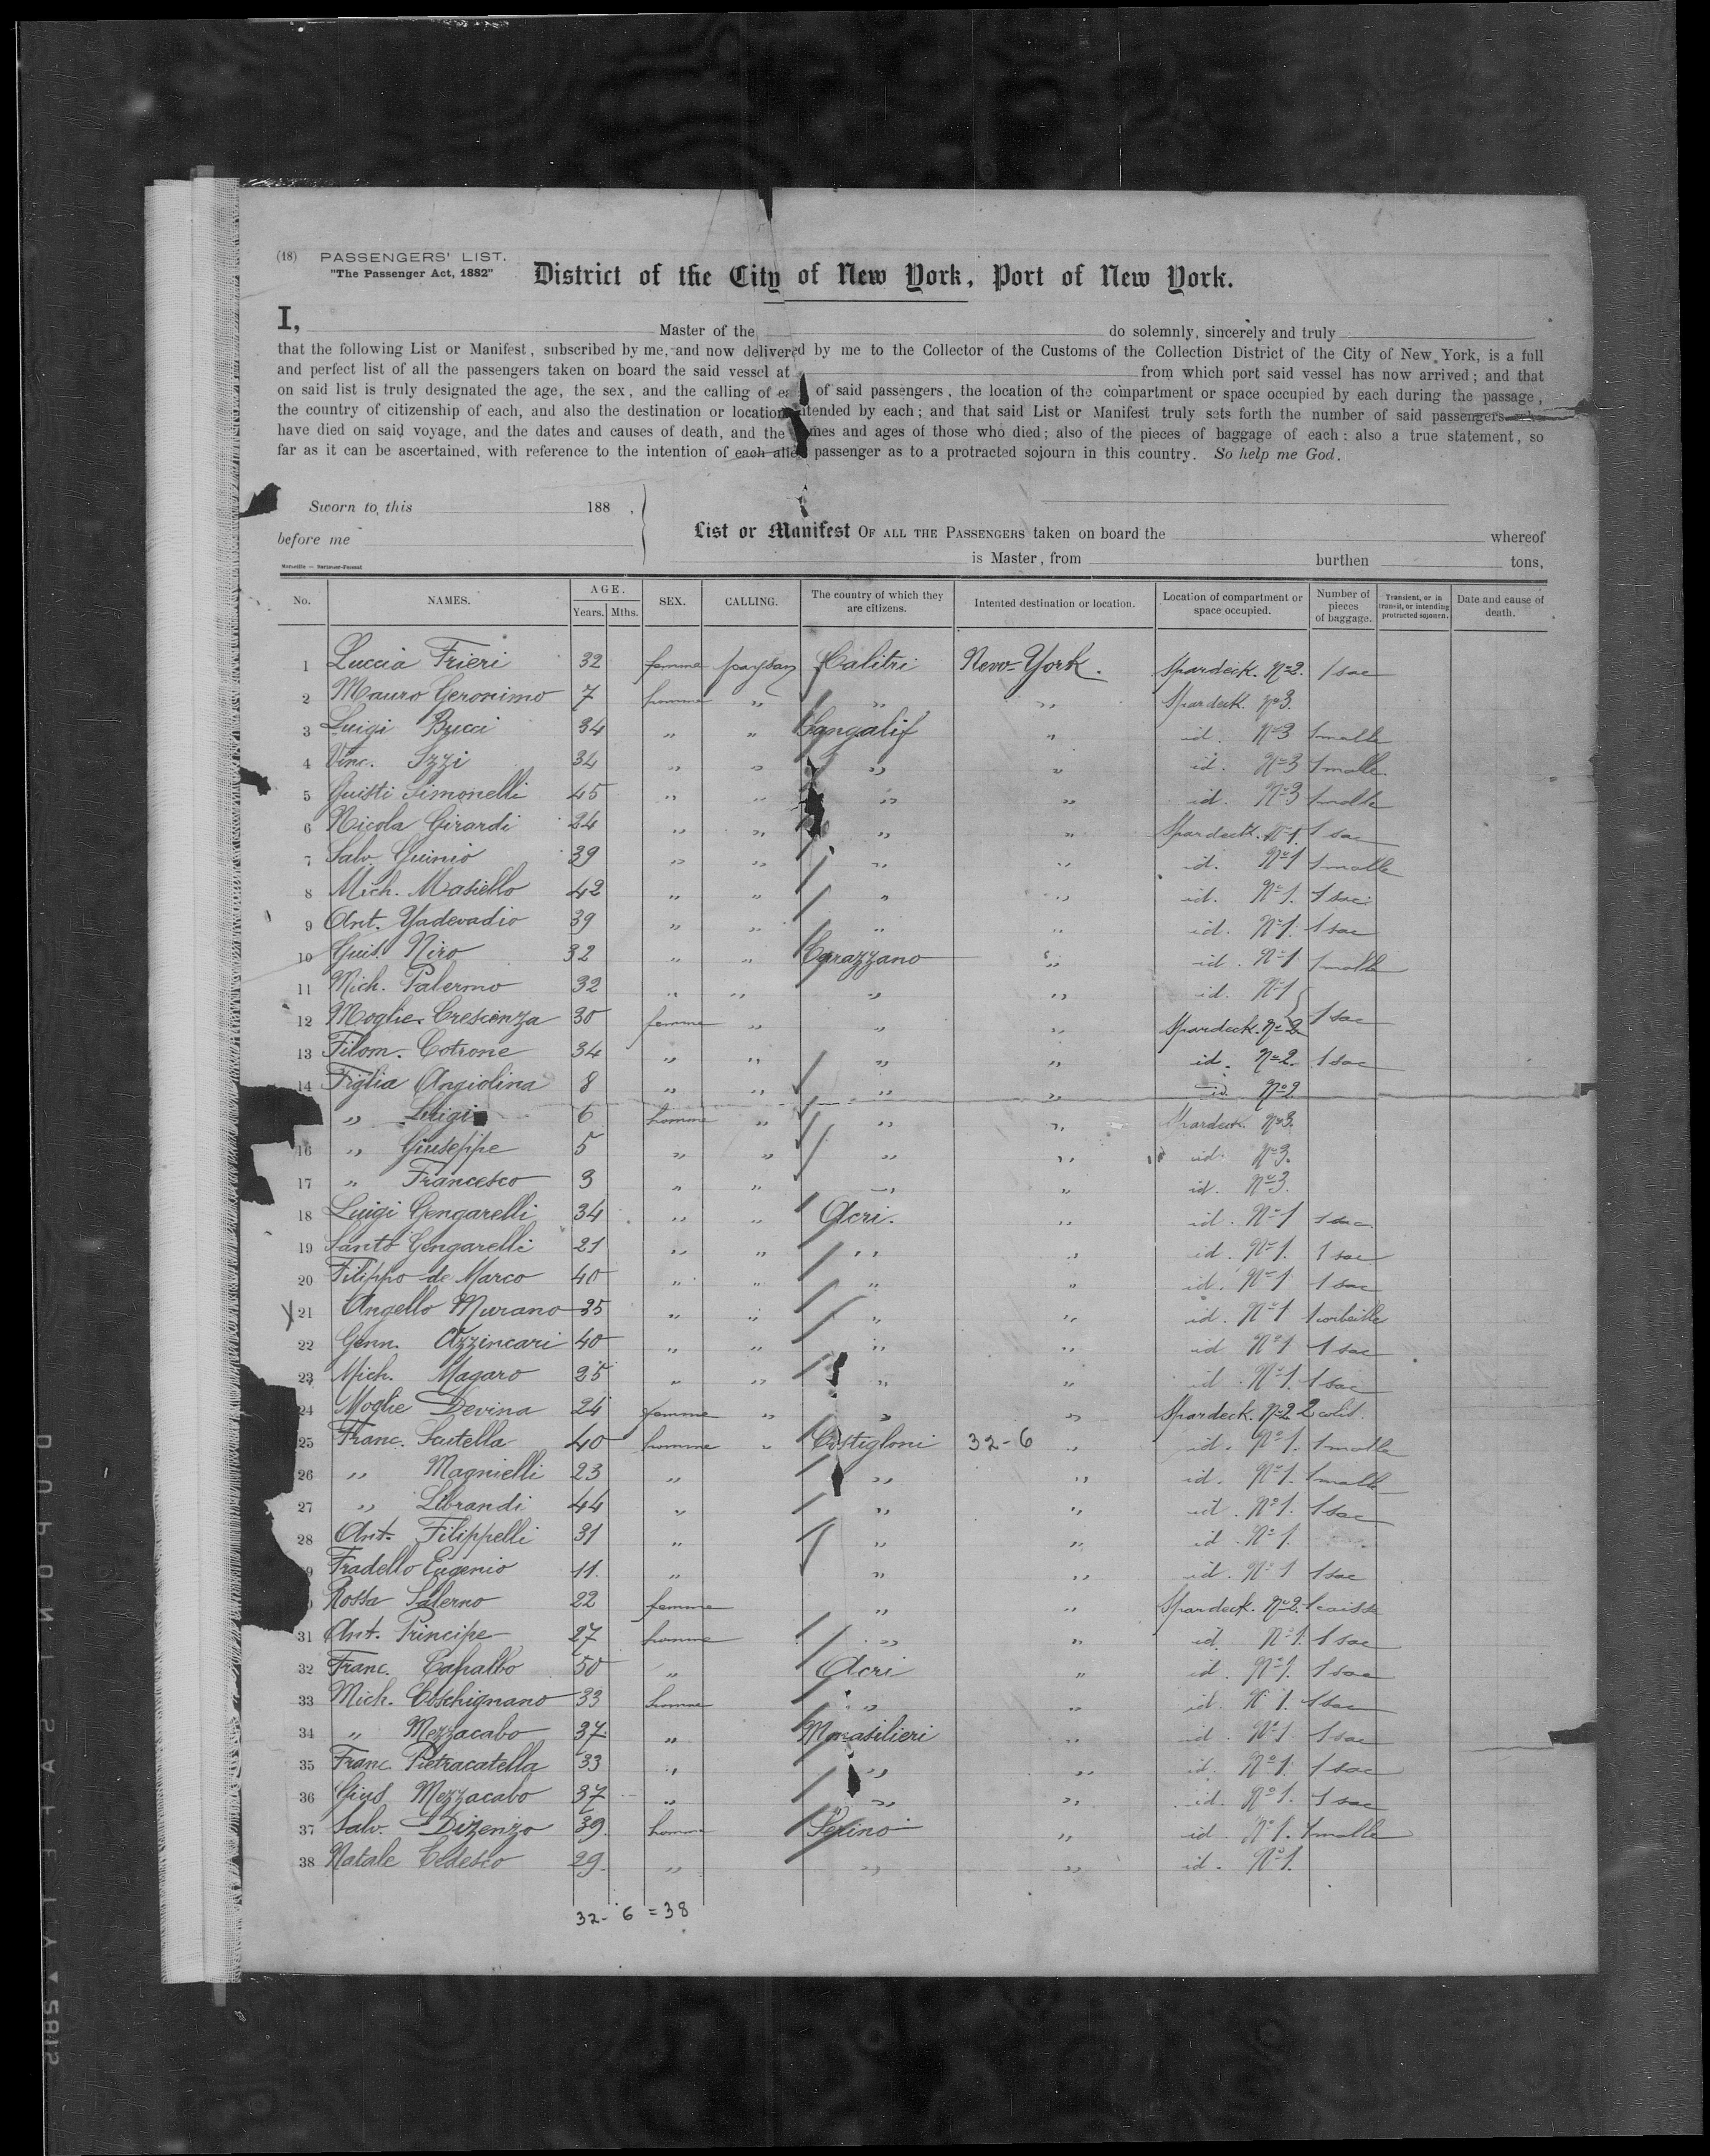 (18) PASSENGERS' LIST.
"The Passenger Act, 1882"
District of the City of New York, Port of New York.
I, Master of the do solemnly, sincerely and truly
that the following List or Manifest, subscribed by me, and now delivered by me to the Collector of the Customs of the Collection District of the City of New York, is a full
and perfect list of all the passengers taken on board the said vessel at from which port said vessel has now arrived; and that
on said list is truly designated the age, the sex, and the calling of ea of said passengers, the location of the compartment or space occupied by each during the passage,
the country of citizenship of each, and also the destination or location intended by each; and that said List or Manifest truly sets forth the number of said passengers who
have died on said voyage, and the dates and causes of death, and the names and ages of those who died; also of the pieces of baggage of each: also a true statement, so
far as it can be ascertained, with reference to the intention of each alien passenger as to a protracted sojourn in this country. So help me God.
Sworn to, this 188 ,
before me
List or Manifest OF ALL THE PASSENGERS taken on board the whereof
is Master, from burthen tons,
No. NAMES. AGE. Years. Mths. SEX. CALLING. The country of which they are citizens. Intented destination or location. Location of compartment or space occupied. Number of pieces of baggage. Transient, or in transit, or intending protracted sojourn. Date and cause of death.
1 Luccia Frieri 32 femme paysan Calitri New-York. Spardeck. No 2. 1 sac
2 Mauro Geronimo 7 homme " " " Spardeck. No 3.
3 Luigi Bucci 34 " " " id. No 3 1 malle
4 Vinc. Izzi 34 " " " " id. No 3 1 malle
5 Guisti Simonelli 45 " " " " id. No 3 1 malle
6 Nicola Girardi 24 " " " " Spardeck. No 1. 1 sac
7 Salv. Guinio 39 " " " " id. No 1 1 malle
8 Mich. Masiello 42 " " " " id. No 1. 1 sac
9 Ant. Yadevadio 39 " " " " id. No 1. 1 sac
10 Guis. Niro 32 " " Carazzano " id. No 1 1 malle
11 Mich. Palermo 32 " " " " id. No 1
12 Moglie Crescenza 30 femme " " " Spardeck. No 2 1 sac
13 Filom. Cotrone 34 " " " " id. No 2. 1 sac
14 Figlia Angiolina 8 " " " " id. No 2
" Luigi 6 homme " " " Spardeck No 3.
16 " Giuseppe 5 " " " " id. No 3.
17 " Francesco 3 " " " " id. No 3.
18 Luigi Gengarelli 34 " " Acri. " id. No 1 1 sac
19 Santo Gengarelli 21 " " " " id. No 1. 1 sac
20 Filippo de Marco 40 " " " " id. No 1 1 sac
21 Angello Murano 35 " " " " id. No 1 1 corbeille
22 Genn. Azzincari 40 " " " " id No 1 1 sac
23 Mich. Magaro 25 " " " " id. No 1. 1 sac
24 Moglie Devina 24 femme " " " Spardeck. No 2 2 colis
25 Franc. Scutella 40 homme " Costigloni 32-6 " id. No 1. 1 malle
26 " Magnielli 23 " " " id. No 1. 1 malle
27 " Librandi 44 " " " id. No 1. 1 sac
28 Ant. Filippelli 31 " " " id. No 1.
9 Fradello Eugenio 11. " " " id. No 1 1 sac
Rossa Salerno 22 femme " " Spardeck. No 2. 1 caisse
31 Ant. Principe 27 homme " " id. No 1. 1 sac
32 Franc. Capalbo 50 " Acri " id. No 1. 1 sac
33 Mich. Coschignano 33 homme " " id. No 1. 1 sac
34 " Mezzacabo 37 " " id. No 1 1 sac
35 Franc. Pietracatella 33 " " " id. No 1. 1 sac
36 Gius Mezzacabo 37 " " " id. No 1. 1 sac
37 Salv. Dizenzo 39. homme " id. No 1. 1 malle
38 Natale 29. " " " id. No 1.
32- 6 = 38